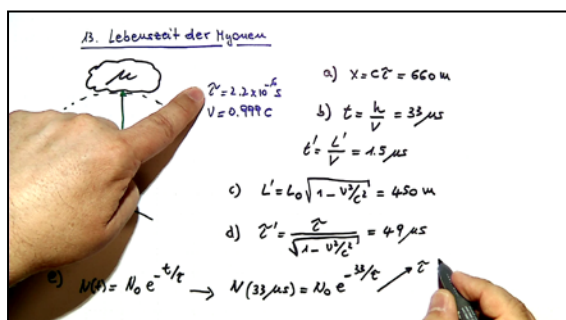 13. Lebenszeit der Myonen
μ
τ = 2.2 x 10⁻⁶ s
V = 0.999 C
a) X = Cτ = 660 m
b) t = h/V = 33 μs
t' = L'/V = 1.5 μs
c) L' = L₀ √(1 - V²/C²) = 450 m
d) τ' = τ/√(1 - V²/C²) = 49 μs
e) N(t) = N₀ e^(-t/τ) → N(33 μs) = N₀ e^(-33/τ) ↗ τ